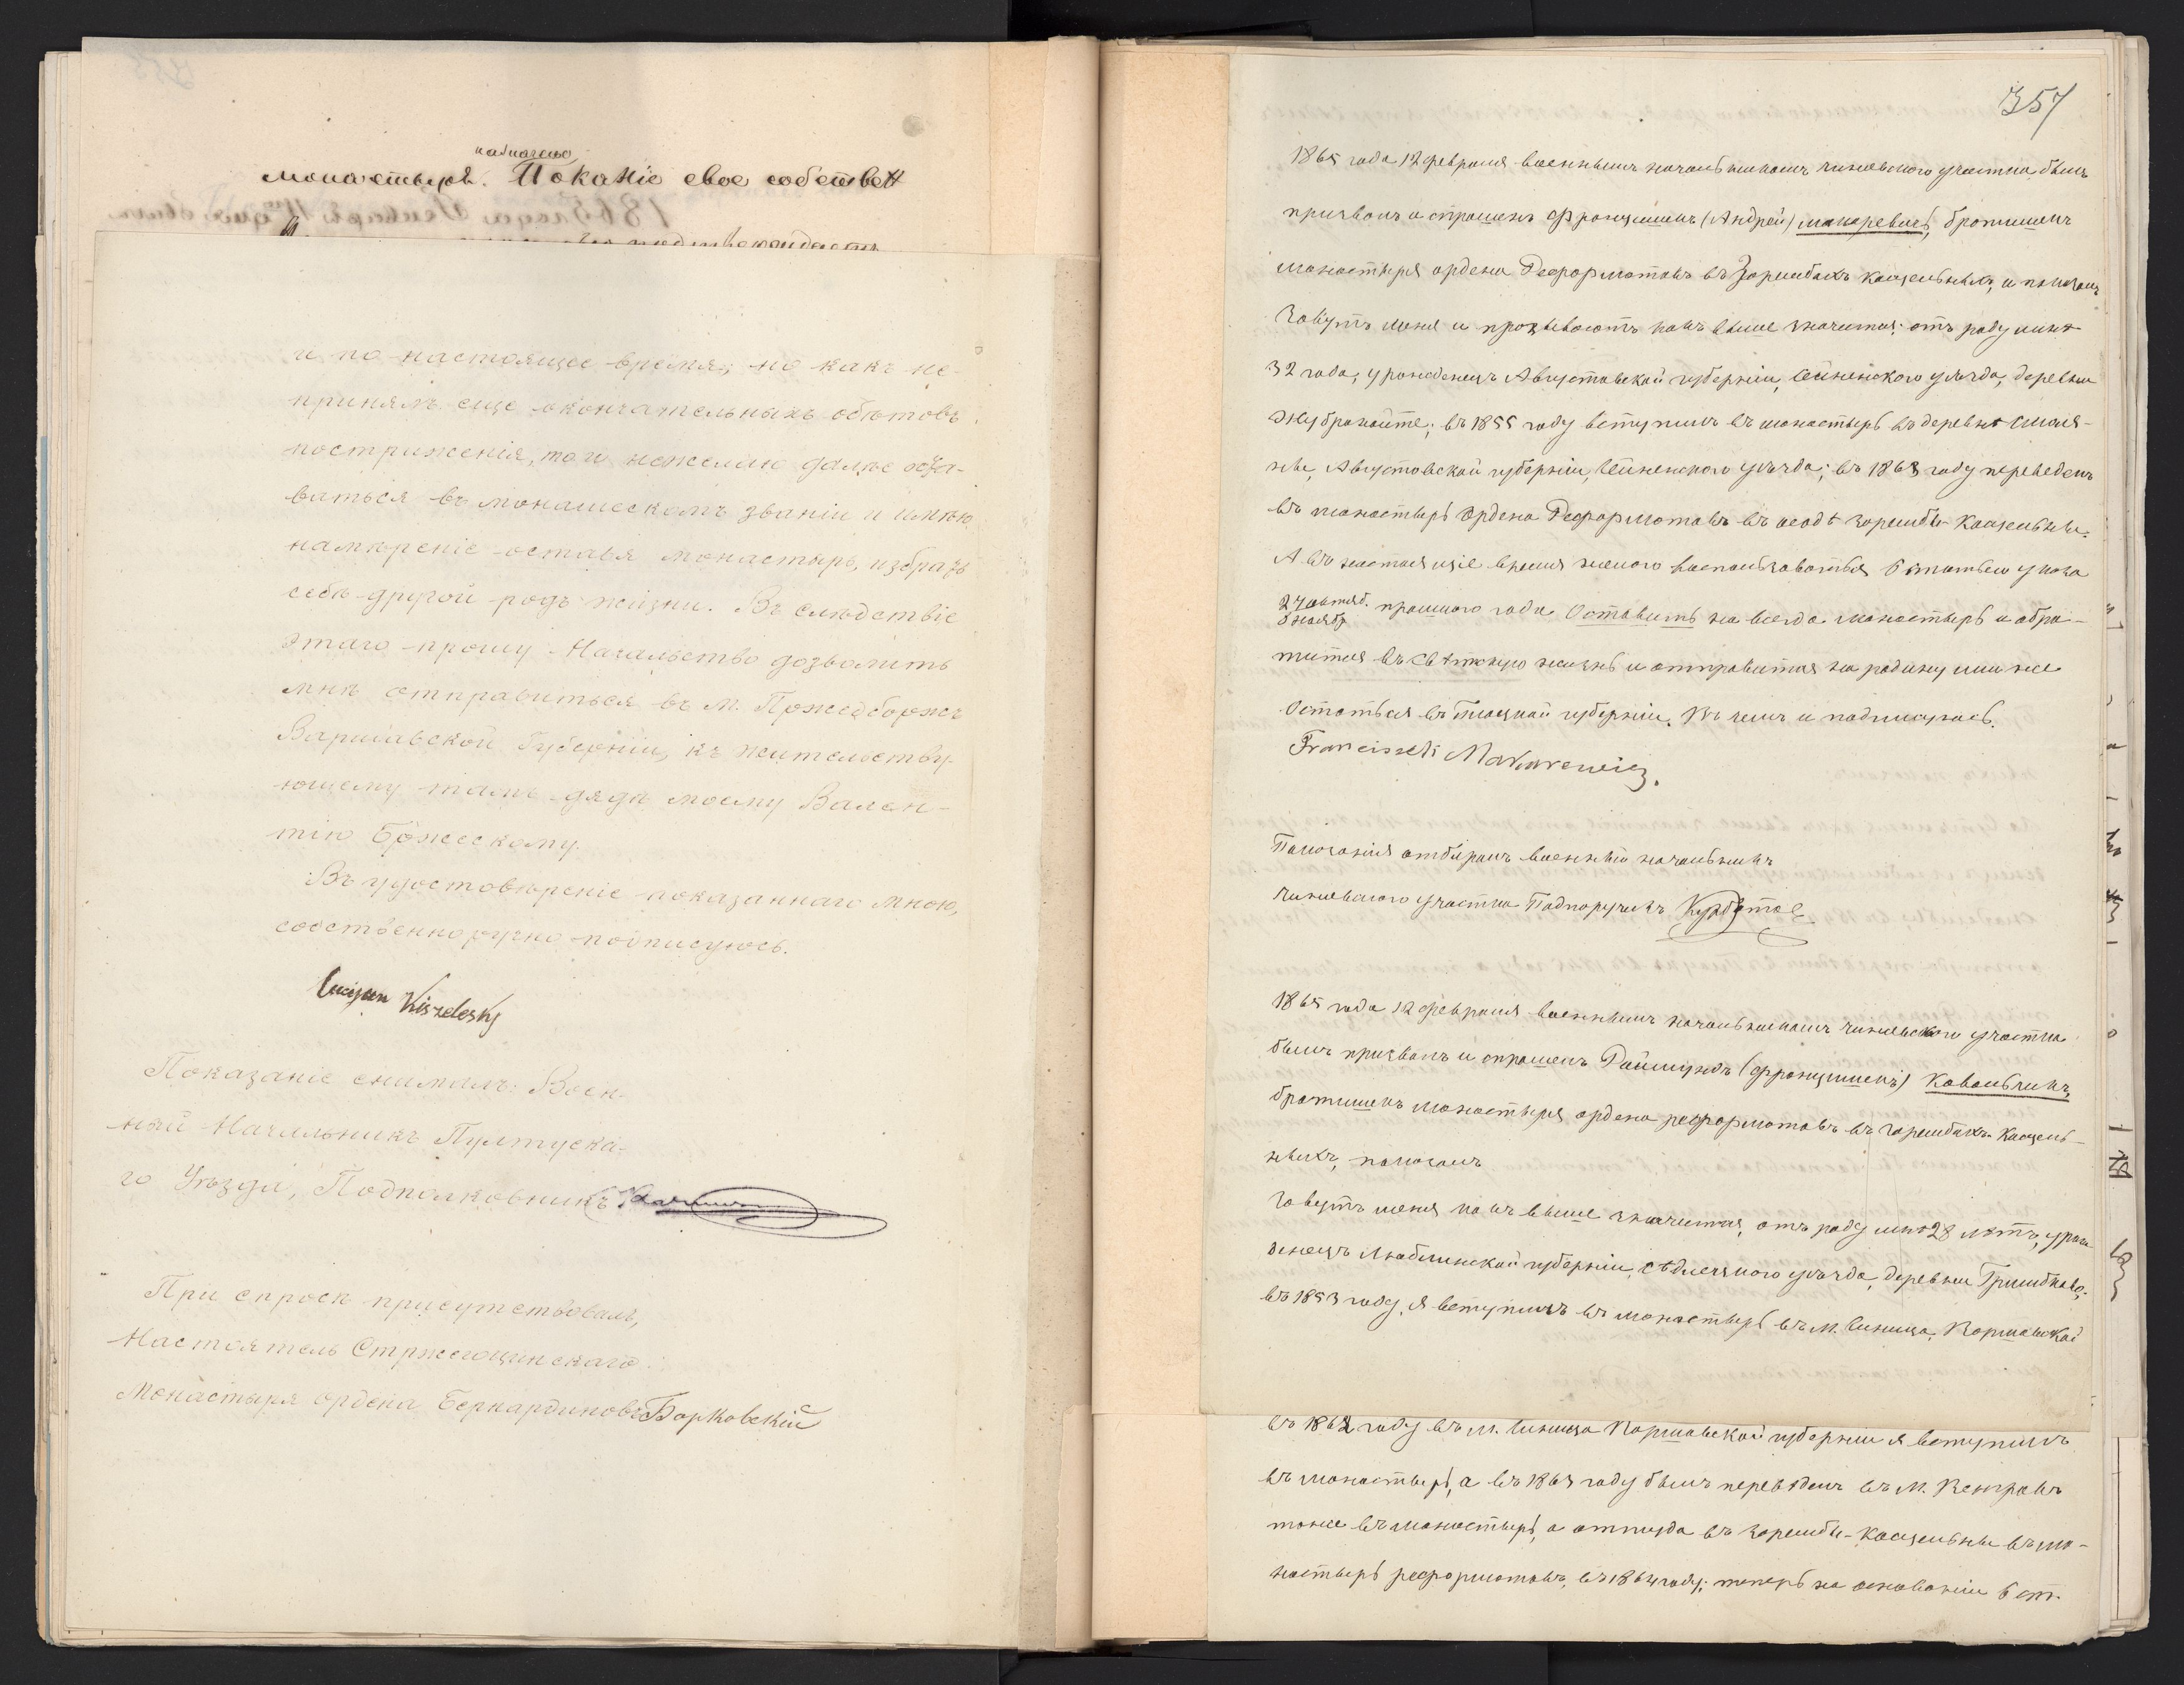 назначено
монастыря. Показаніе свое собствен
и по настоящее время; но какъ не-
принялъ еще окончательныхъ обѣтовъ
постриженія, то и нежелаю далѣе оста-
ваться въ монашескомъ званіи и имѣю
намѣреніе оставя монастырь, избрать
себѣ другой родъ жизни. Въ слѣдствіе
этаго прошу Начальство дозволить
мнѣ отправиться въ м. Пржедборжъ
Варшавской Губерніи, къ жительству-
ющему тамъ дядѣ моему Вален-
тію Божескому.
Въ удостовѣреніе показаннаго мною,
собственноручно подписуюсь.
Lucyan Kiszelesky
Показаніе снималъ: Воен-
ный Начальникъ Пултуска-
го Уѣзда, Подполковникъ
При спросѣ присутствовалъ,
Настоятель Стржегоцинскаго
Монастыря ордена Бернардиновъ Борковскій
357
1865 года 12 февраля военнымъ начальникомъ чижевскаго участка былъ
призванъ и спрошенъ Францишекъ (Андрей) Макаревичъ, братишекъ
монастыря ордена Реформатовъ въ Зарембахъ Косцельныхъ, и показалъ
Зовутъ меня и прозываютъ какъ выше значится; отъ роду имѣю
32 года, уроженецъ Августовской губерніи, Сейненскаго уѣзда, деревни
въ 1855 году вступилъ въ монастырь въ деревнѣ Смоля-
ны, Августовской губерніи, Сейненскаго уѣзда; въ 1863 году переведенъ
въ монастырь Ордена Реформатовъ въ посадѣ Зарембы-Косцельны.
А въ настоящіе время желаю воспользоваться 6 статьею указа
27 октяб. / 8 ноябр. прошлаго года Оставить на всегда монастырь и обра-
титься въ свѣтскую жизнь и отправиться на родину или же
Остаться въ Плоцкой губерніи. Въ чемъ и подписуюсь.
Franciszek Makarewicz.
Показанія отбиралъ военный начальникъ
чижевскаго участка Подпоручикъ
1865 года 12 февраля военнымъ начальникомъ чижевскаго участка
былъ призванъ и спрошенъ Раймундъ (Францишекъ) Ковальчикъ,
братишекъ монастыря ордена реформатовъ въ Зарембахъ Косцель-
ныхъ, показалъ
Зовутъ меня какъ выше значится, отъ роду имѣю 28 лѣтъ, уро-
женецъ Люблинской губерніи, Сѣдлецкаго уѣзда, деревни
въ 1853 году, я вступилъ въ монастырь въ м. Сеница, Варшавской
въ 1862 году въ м. Сеница Варшавской губерніи я вступилъ
въ монастырь, а въ 1863 году былъ переведенъ въ м. Венгровъ
тоже въ монастырь, а оттуда въ Зарембы-Косцельны въ мо-
настырь реформатовъ, въ 1864 году; теперь на основаніи 6 ст.